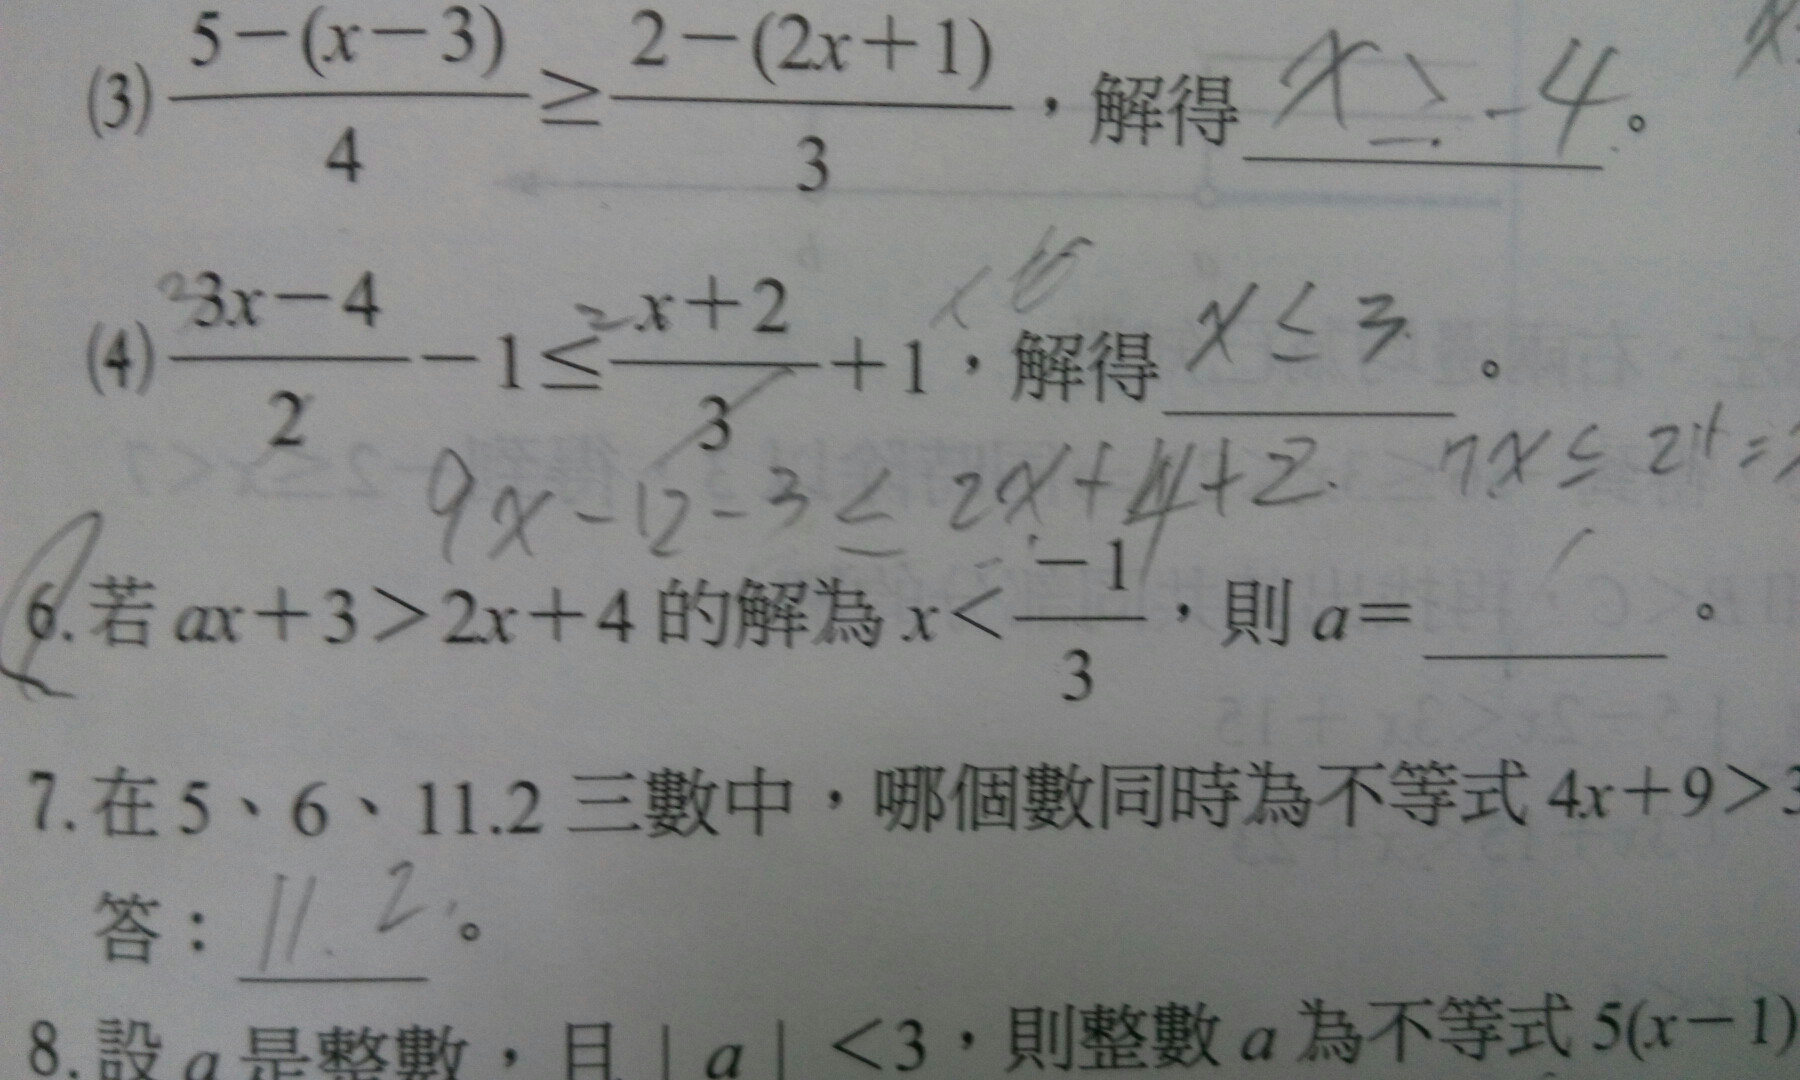 (3) \frac{5-(x-3)}{4} ≥ \frac{2-(2x+1)}{3}，解得 x ≥ -4。
(4) \frac{3x-4}{2} -1 ≤ \frac{x+2}{3} +1，解得 x ≤ 3。
9x-12-3 ≤ 2x+4+2. 7x ≤ 21 =
6. 若 ax+3>2x+4 的解為 x< \frac{-1}{3}，則 a= 。
7. 在 5、6、11.2 三數中，哪個數同時為不等式 4x+9>3
答：11.2。
8. 設 a 是整數，且 | a | <3，則整數 a 為不等式 5(x-1)